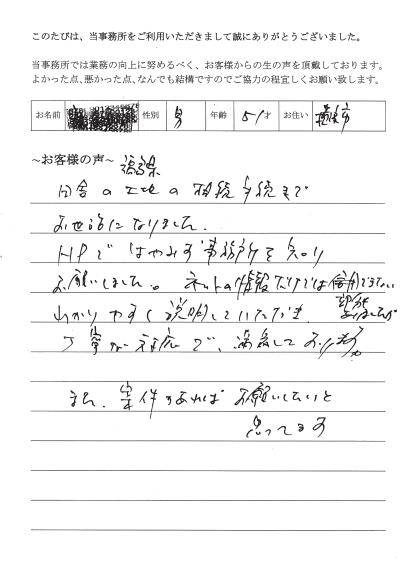 このたびは、当事務所をご利用いただきまして誠にありがとうございました。
当事務所では業務の向上に努めるべく、お客様からの生の声を頂戴しております。
よかった点、悪かった点、なんでも結構ですのでご協力の程宜しくお願い致します。
お名前 性別 男 年齢 51才 お住い 横浜市
~お客様の声~
福島県
田舎の土地の相続手続まで
お世話になりました。
HPではやみず事務所を知り
お願いしました。ネットの情報だけでは信用できない
わかりやすく説明していただき
丁寧な対応で、満足しております
また、案件があればお願いしたいと
思ってます